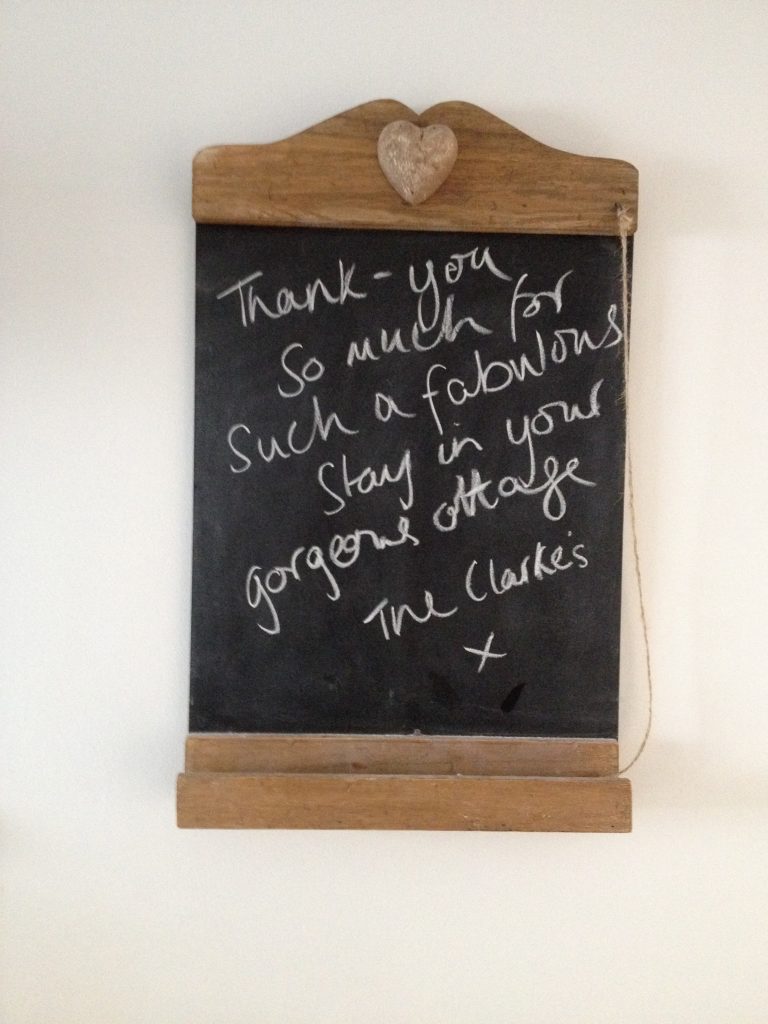 Thank-you
So much for
Such a fabulous
Stay in your
gorgeous cottage
The Clarke's
x